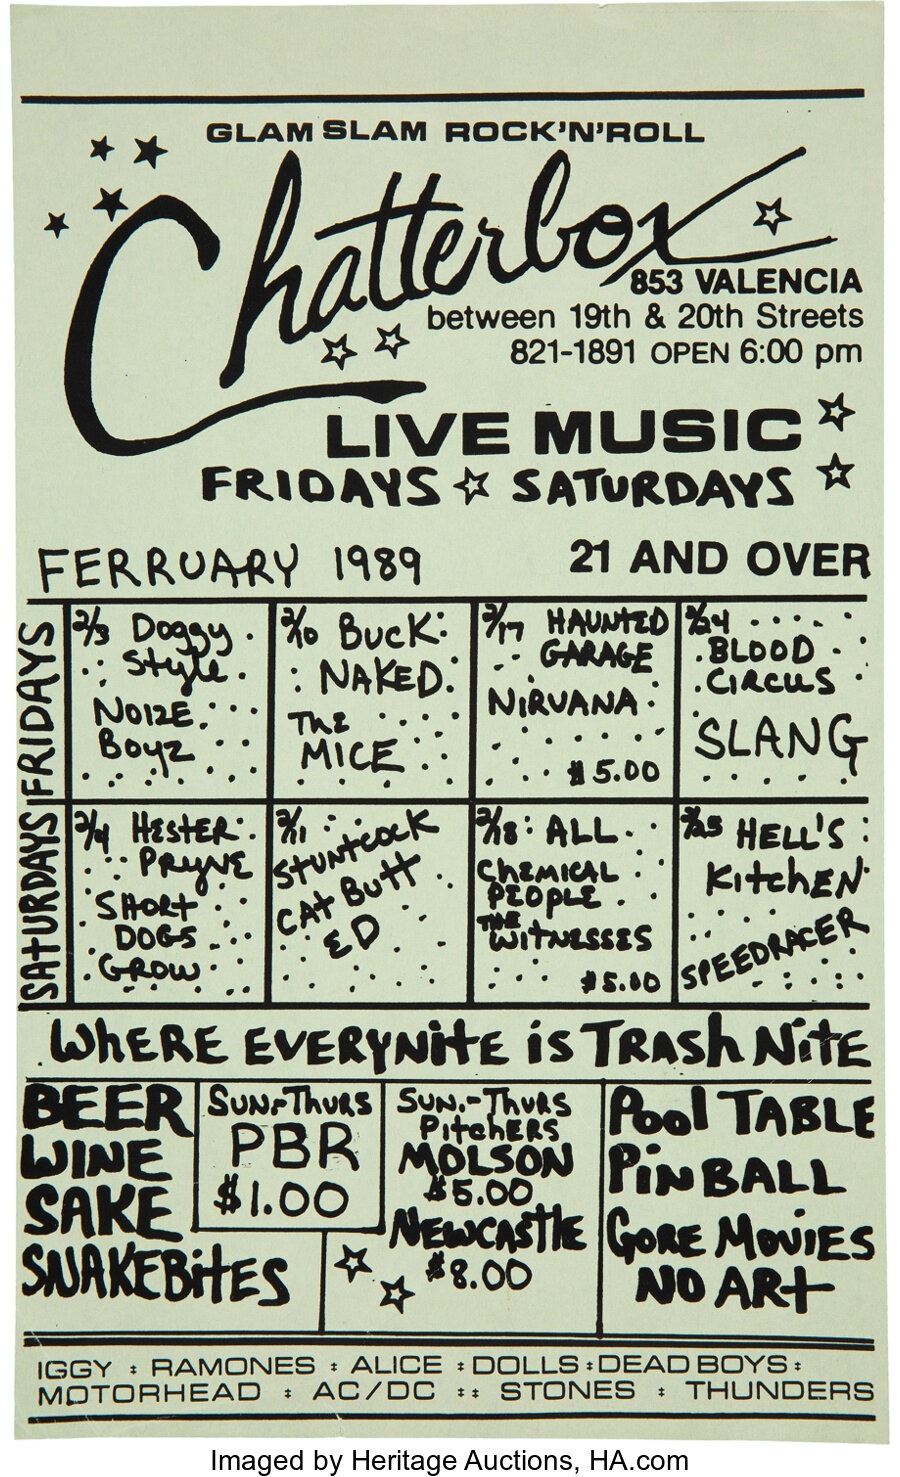 GLAM SLAM ROCK'N'ROLL
Chatterbox
853 VALENCIA
between 19th & 20th Streets
821-1891 OPEN 6:00 pm
LIVE MUSIC
FRIDAYS ☆ SATURDAYS
FERRUARY 1989
21 AND OVER
FRIDAYS
2/3 Doggy
Style
NOIZE
Boyz
2/10 BUCK
NAKED
THE
MICE
2/17 HAUNTED
GARAGE
NIRVANA
$5.00
2/24
BLOOD
CIRCUS
SLANG
SATURDAYS
2/4 HESTER
PRYNE
SHORT
DOGS
GROW
2/11
STUNTCOCK
CAT BUTT
ED
2/18 ALL
CHEMICAL
PEOPLE
THE
WITNESSES
$5.00
2/25 HELL'S
KITCHEN
SPEEDRACER
WHERE EVERYNITE IS TRASH NITE
BEER
WINE
SAKE
SNAKEBITES
SUN-THURS
PBR
$1.00
SUN.-THURS
PITCHERS
MOLSON
$5.00
NEWCASTLE
$8.00
POOL TABLE
PINBALL
GORE MOVIES
NO ART
IGGY : RAMONES : ALICE : DOLLS : DEAD BOYS :
MOTORHEAD : AC/DC :: STONES : THUNDERS
Imaged by Heritage Auctions, HA.com